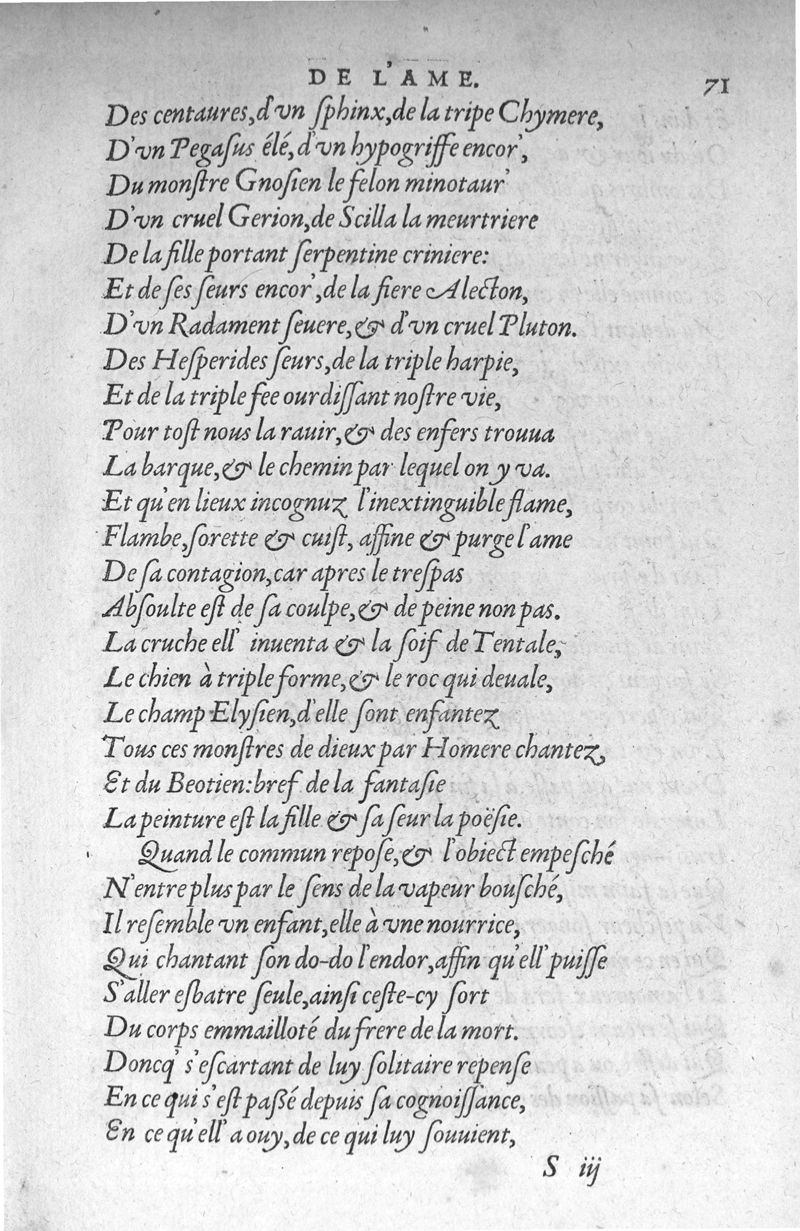 DE L'AME. 71
Des centaures,d'vn ſphinx,de la tripe Chymere,
D'vn Pegaſus élé,d'vn hypogriffe encor',
Du monſtre Gnoſien le felon minotaur'
D'vn cruel Gerion,de Scilla la meurtriere
De la fille portant ſerpentine criniere:
Et de ſes ſeurs encor',de la fiere Alecton,
D'vn Radament ſeuere,& d'vn cruel Pluton.
Des Heſperides ſeurs,de la triple harpie,
Et de la triple fee ourdiſſant noſtre vie,
Pour toſt nous la rauir,& des enfers trouua
La barque,& le chemin par lequel on y va.
Et qu'en lieux incognuz l'inextinguible flame,
Flambe,ſorette & cuiſt, affine & purge l'ame
De ſa contagion,car apres le treſpas
Abſoulte eſt de ſa coulpe,& de peine non pas.
La cruche ell' inuenta & la ſoif de Tentale,
Le chien à triple forme,& le roc qui deuale,
Le champ Elyſien,d'elle ſont enfantez
Tous ces monſtres de dieux par Homere chantez,
Et du Beotien:bref de la fantaſie
La peinture eſt la fille & ſa ſeur la poëſie.
Quand le commun repoſe,& l'obiect empeſché
N'entre plus par le ſens de la vapeur bouſché,
Il reſemble vn enfant,elle à vne nourrice,
Qui chantant ſon do-do l'endor,affin qu'ell' puiſſe
S'aller esbatre ſeule,ainſi ceſte-cy ſort
Du corps emmailloté du frere de la mort.
Doncq' s'eſcartant de luy ſolitaire repenſe
En ce qui s'eſt paßé depuis ſa cognoiſſance,
En ce qu'ell' a ouy,de ce qui luy ſouuient,
S iij